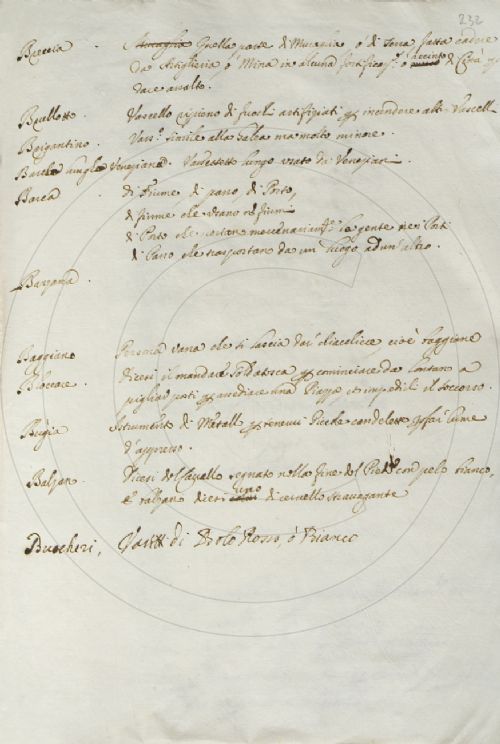 232
Breccia . Muraglia Quella parte di Muraglia, ó di Terra fatta cadere
da Artiglieria ó Mina in alcuna fortificaz. ó recinto di Città p
dare assalto.
Brullotto . Vascello ripieno di fuochi artifiziati p incendere altri Vascelli
Brigantino . Vass.º simile alla Galea ma molto minore.
Barca lunga Veneziana . Vascelletto lungo usato da Veneziani.
Barca . di Fiume, di , di Porto,
di fiume che usano ne fiumi
di Porto che portano la gente nei Porti
di che trasportano da un luogo ad un'altro.
Barzana .
Baggiano Persona vana che si lascia dar' , cioè baggiane
Bloccare . Dicesi il mandare Soldatesca p cominciare da lontano a
pigliar posti p assediare una Piazza et impedirli il soccorso.
Bugia Istrumento di Metall p tenervi Picciole candelette p far lume
d'appresso.
Balzan . Dicesi del Cavallo segnato nella fine del Piede con pelo bianco,
e balzano dicesi uno di cervello stravagante
Buccheri, Vasetti di Rosso, ó Bianco